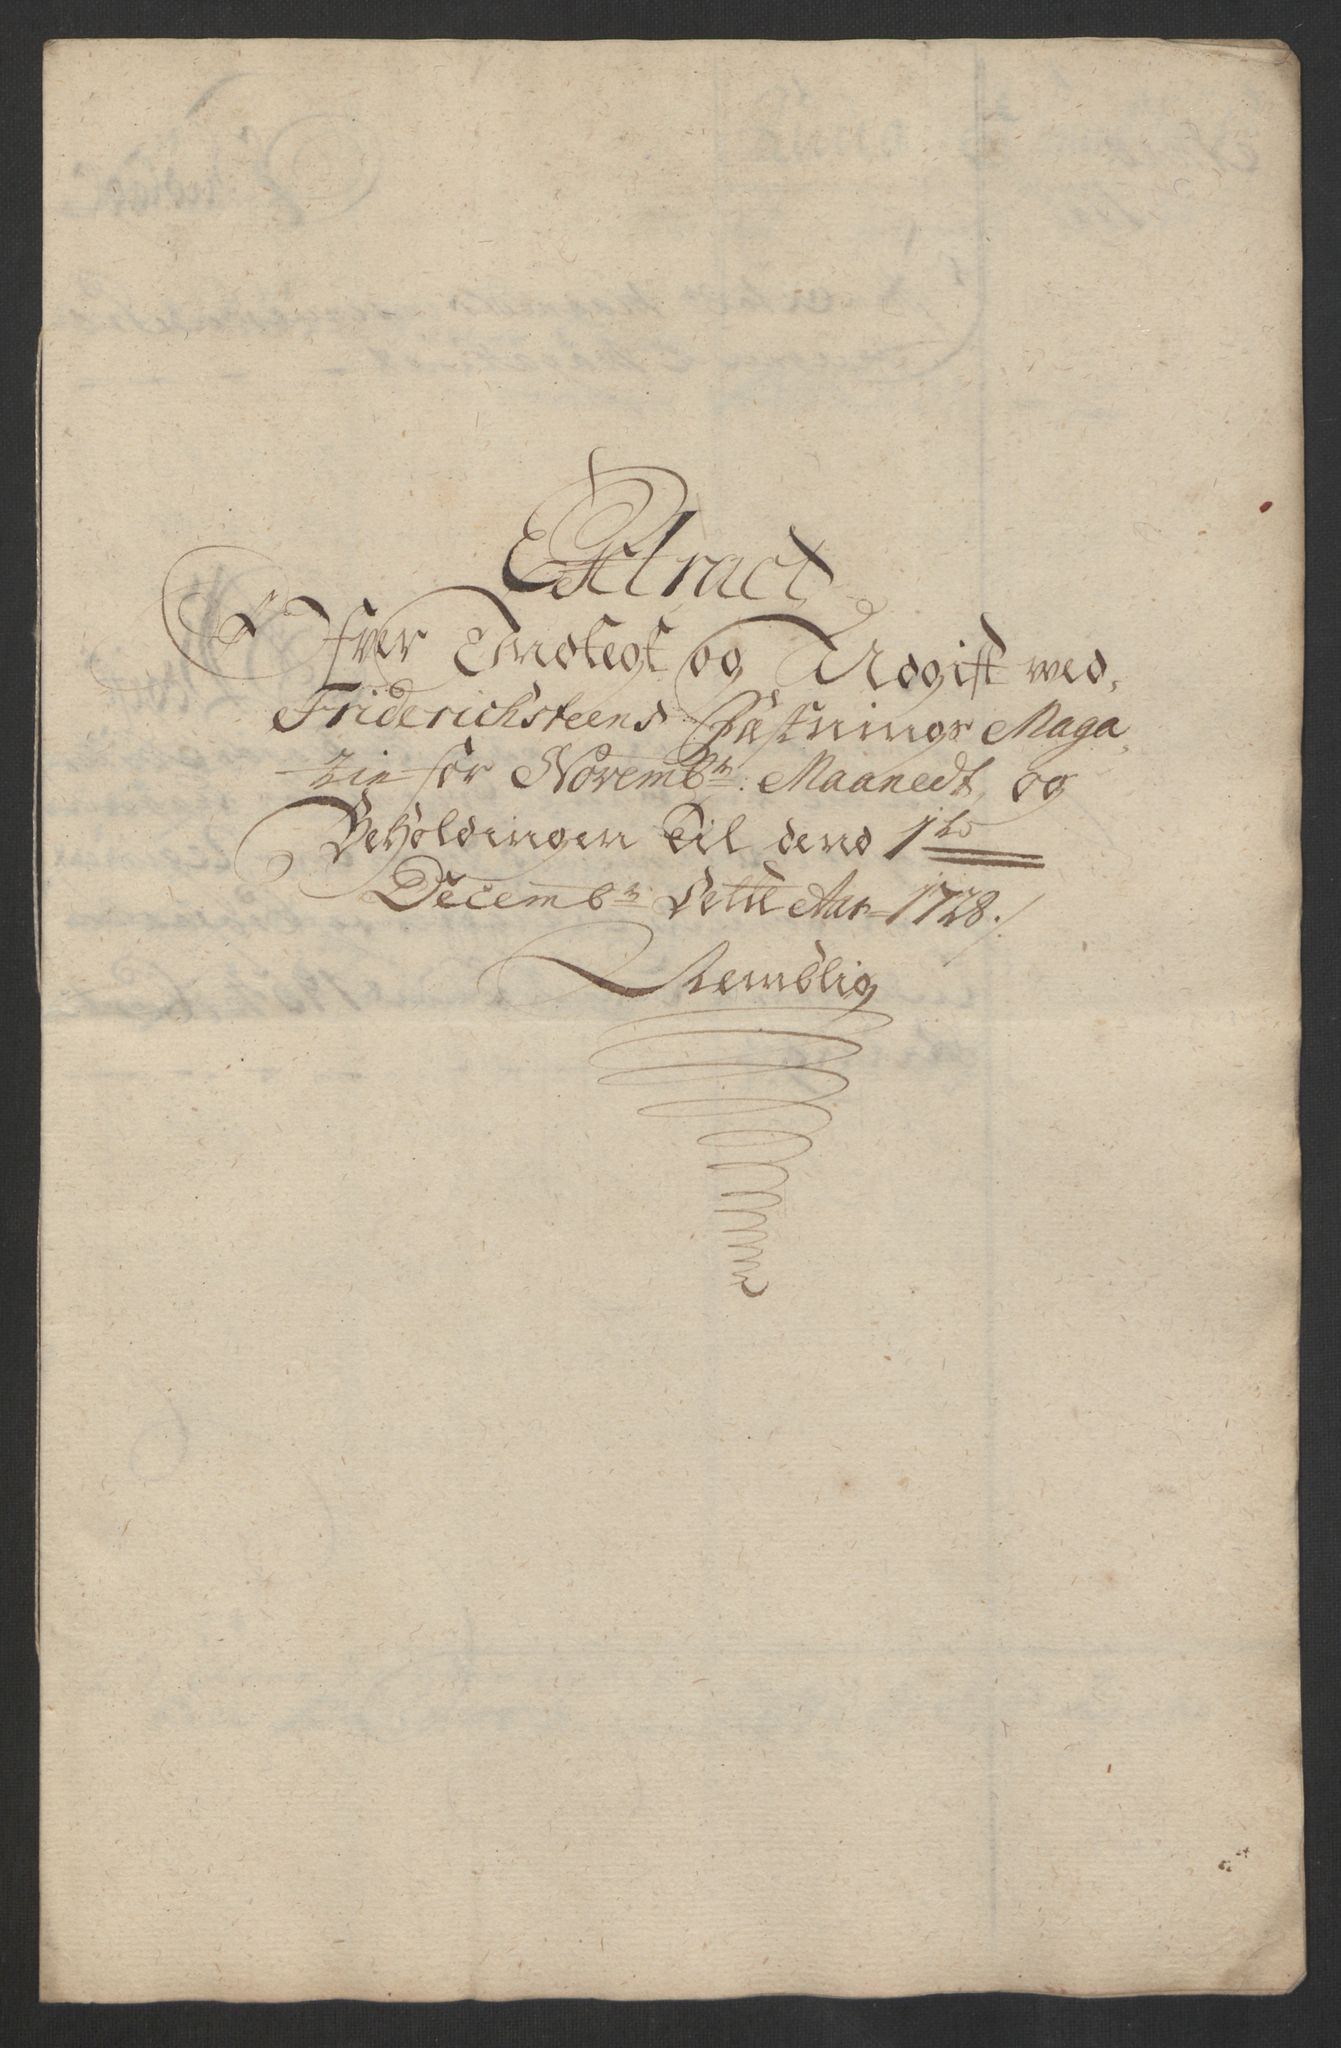 Extract
Ofver Indtegt og Udgift ved
Friderichsteens Fæstnings Maga
zin for Novembr: Maaned, og
Beholdingen til dend 1te
Decembr: Dette Aar 1728./
Nemblig